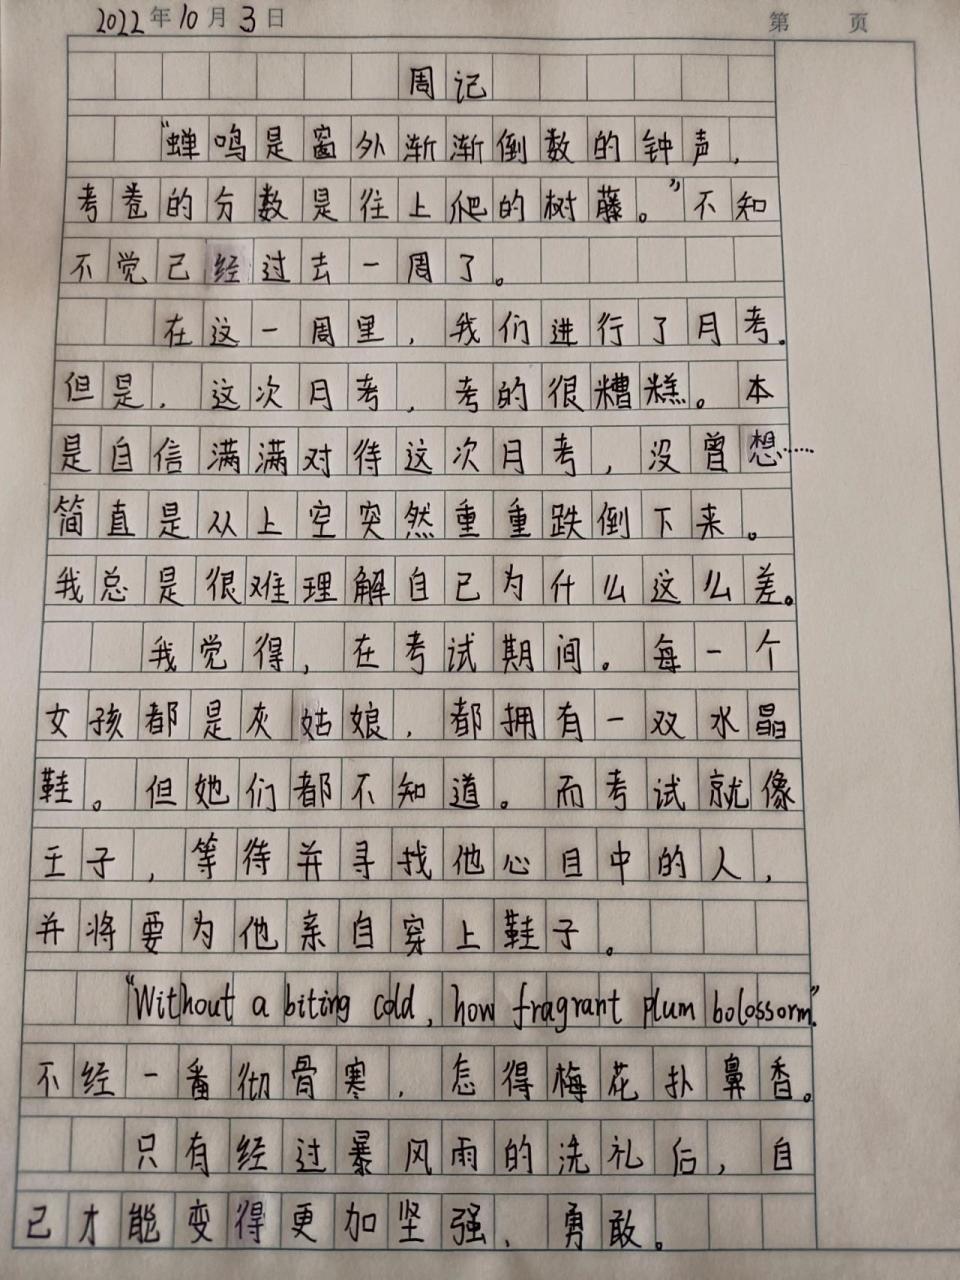 2022年10月3日 第 页
周记
“蝉鸣是窗外渐渐倒数的钟声，
考卷的分数是往上爬的树藤。”不知
不觉已经过去一周了。
在这一周里，我们进行了月考.
但是，这次月考，考的很糟糕。本
是自信满满对待这次月考，没曾想……
简直是从上空突然重重跌倒下来。
我总是很难理解自己为什么这么差。
我觉得，在考试期间。每一个
女孩都是灰姑娘，都拥有一双水晶
鞋。但她们都不知道。而考试就像
王子，等待并寻找他心目中的人，
并将要为他亲自穿上鞋子。
“Without a biting cold, how fragrant plum bolossorm.”
不经一番彻骨寒，怎得梅花扑鼻香。
只有经过暴风雨的洗礼后，自
己才能变得更加坚强、勇敢。